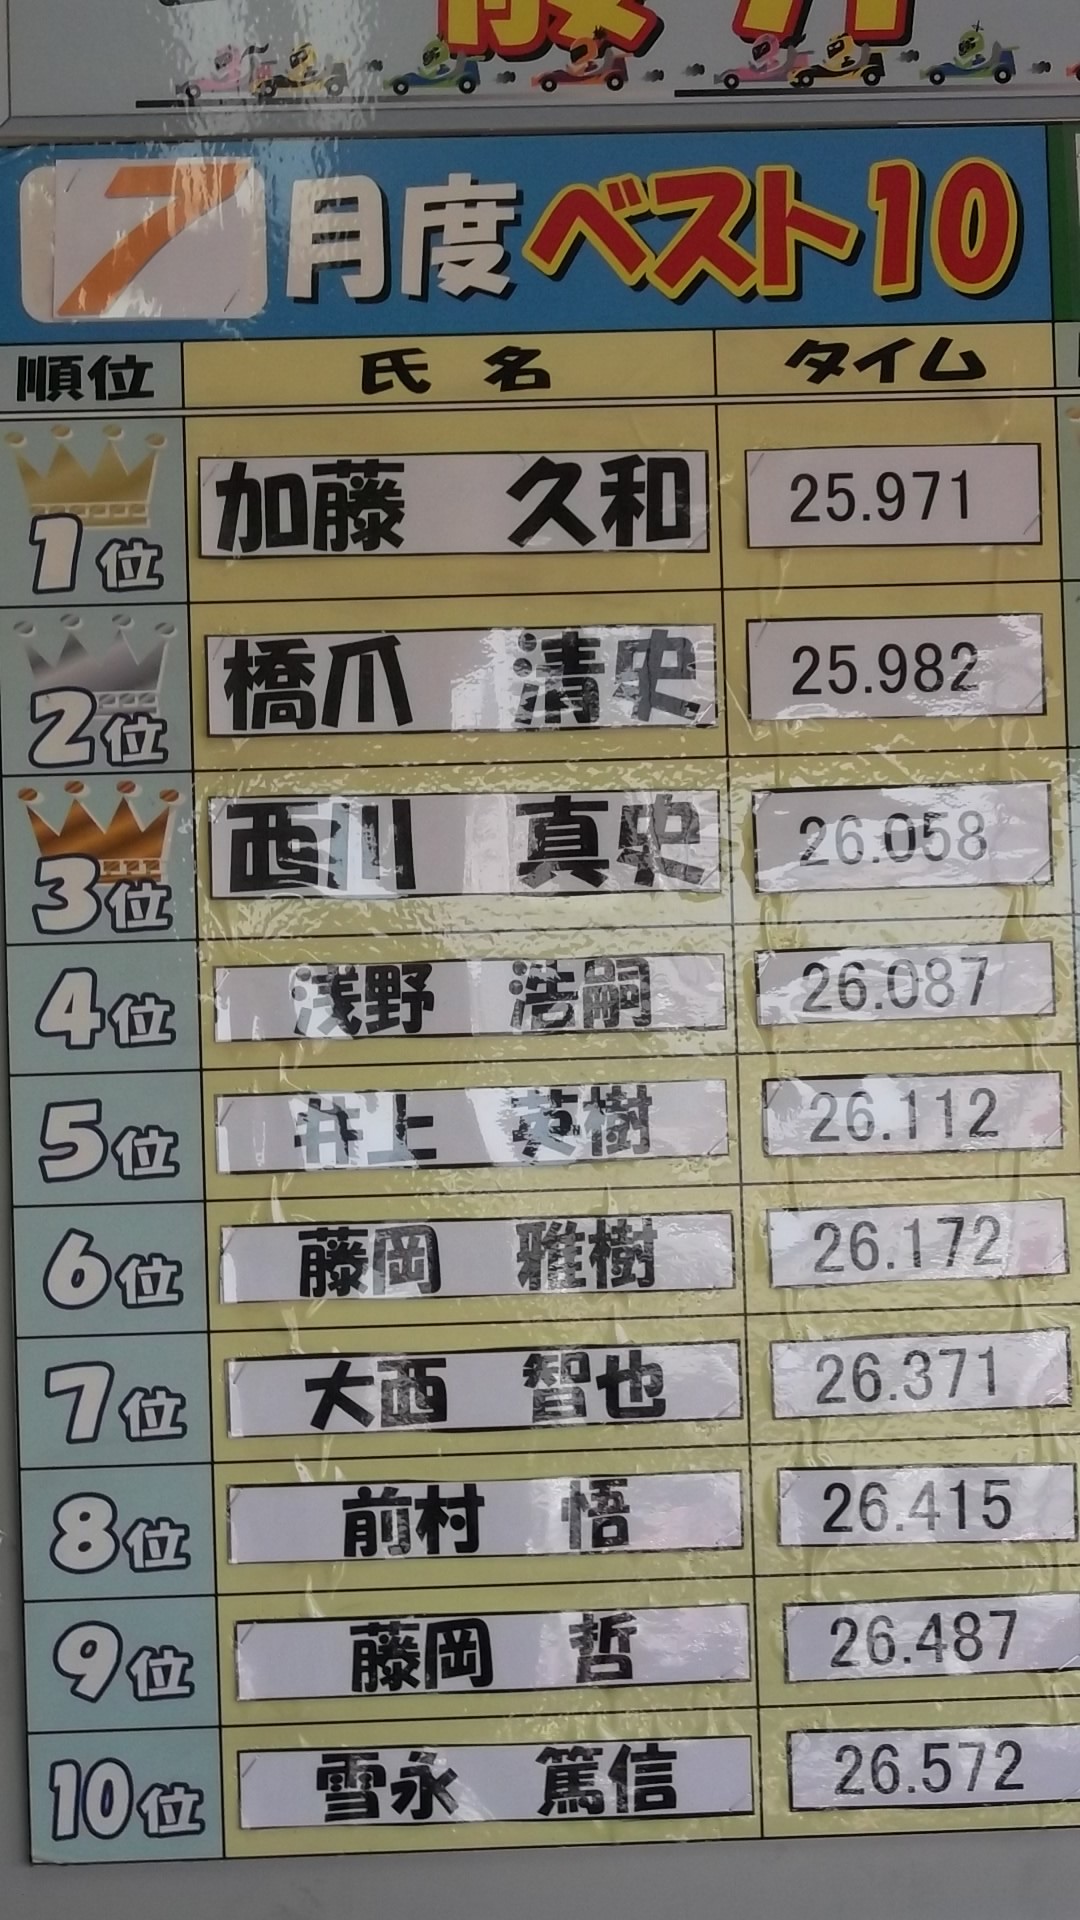 7月度ベスト10
順位 氏名 タイム
1位 加藤 久和 25.971
2位 橋爪 清史 25.982
3位 西川 真史 26.058
4位 浅野 浩嗣 26.087
5位 井上 英樹 26.112
6位 藤岡 雅樹 26.172
7位 大西 智也 26.371
8位 前村 悟 26.415
9位 藤岡 哲 26.487
10位 雪永 篤信 26.572